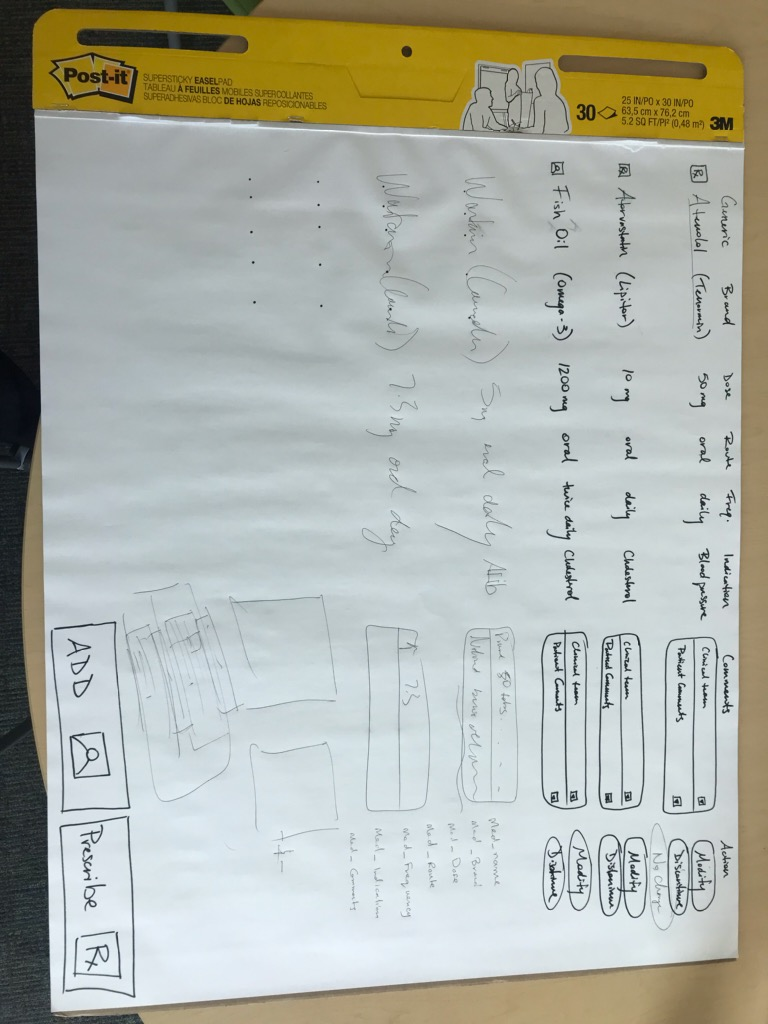 Post-it
SUPERSTICKY EASELPAD
TABLEAU À FEUILLES MOBILES SUPERCOLLANTES
SUPERADHESIVAS BLOC DE HOJAS REPOSICIONABLES
30
25 IN/PO x 30 IN/PO
63,5 cm x 76,2 cm
5.2 SQ FT/PI² (0,48 m²)
3M
Generic Brand Dose Route Freq. Indication Comments Action
Rx Atenolol (Tenormin) 50 mg oral daily Blood pressure
Clinical team
Patient Comments
Modify
Discontinue
No change
Rx Atorvastatin (Lipitor) 10 mg oral daily Cholesterol
Clinical team
Patient Comments
Modify
Discontinue
Fish Oil (Omega-3) 1200 mg oral twice daily Cholesterol
Clinical team
Patient Comments
Modify
Discontinue
5mg oral daily Afib
7.5 mg oral
7.5
Med_name
Med_Brand
Med_Dose
Med_Route
Med_Frequency
Med_Indication
Med_Comments
ADD
Prescribe Rx